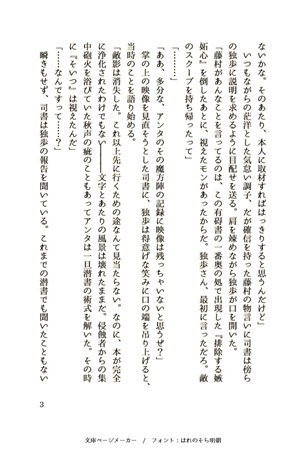 ないかな。そのあたり、本人に取材すればはっきりすると思うんだけど」
　いつもながらの茫洋とした気怠い調子、だが確信を持った藤村の物言いに司書は傍ら
の独歩に説明を求めるように目配せを送る。肩を竦めながら独歩が口を開いた。
「藤村があんなことを言ってるのは、この有碍書の一番奥の処で出現した『排除する嫉
妬心』を倒したあとに、視えたモンがあったからだ。独歩さん、最初に言っただろ。敵
のスクープを持ち帰ったって」
「……」
「ああ、多分な、アンタのその魔方陣の記録に映像は残っちゃいないと思うぜ？」
　掌の上の映像を見直そうとした司書に、独歩は得意げな笑みに口の端を吊り上げると、
当時のことを語り始める。
「敵影は消失した。これ以上先に行くための途なんて見当たらない。なのに、本が完全
に浄化されたわけでもない――文字とあたりの風景は壊れたままだ。侵蝕者からの集
中砲火を浴びていた秋声の疵のこともあってアンタは一旦潜書の術式を解いた。その時
に『そいつ』は視えたんだ」
「……なんですって……？」
　瞬きもせず、司書は独歩の報告を聞いている。これまでの潜書でも聞いたこともない
3
文庫ページメーカー　/　フォント：はれのそら明朝